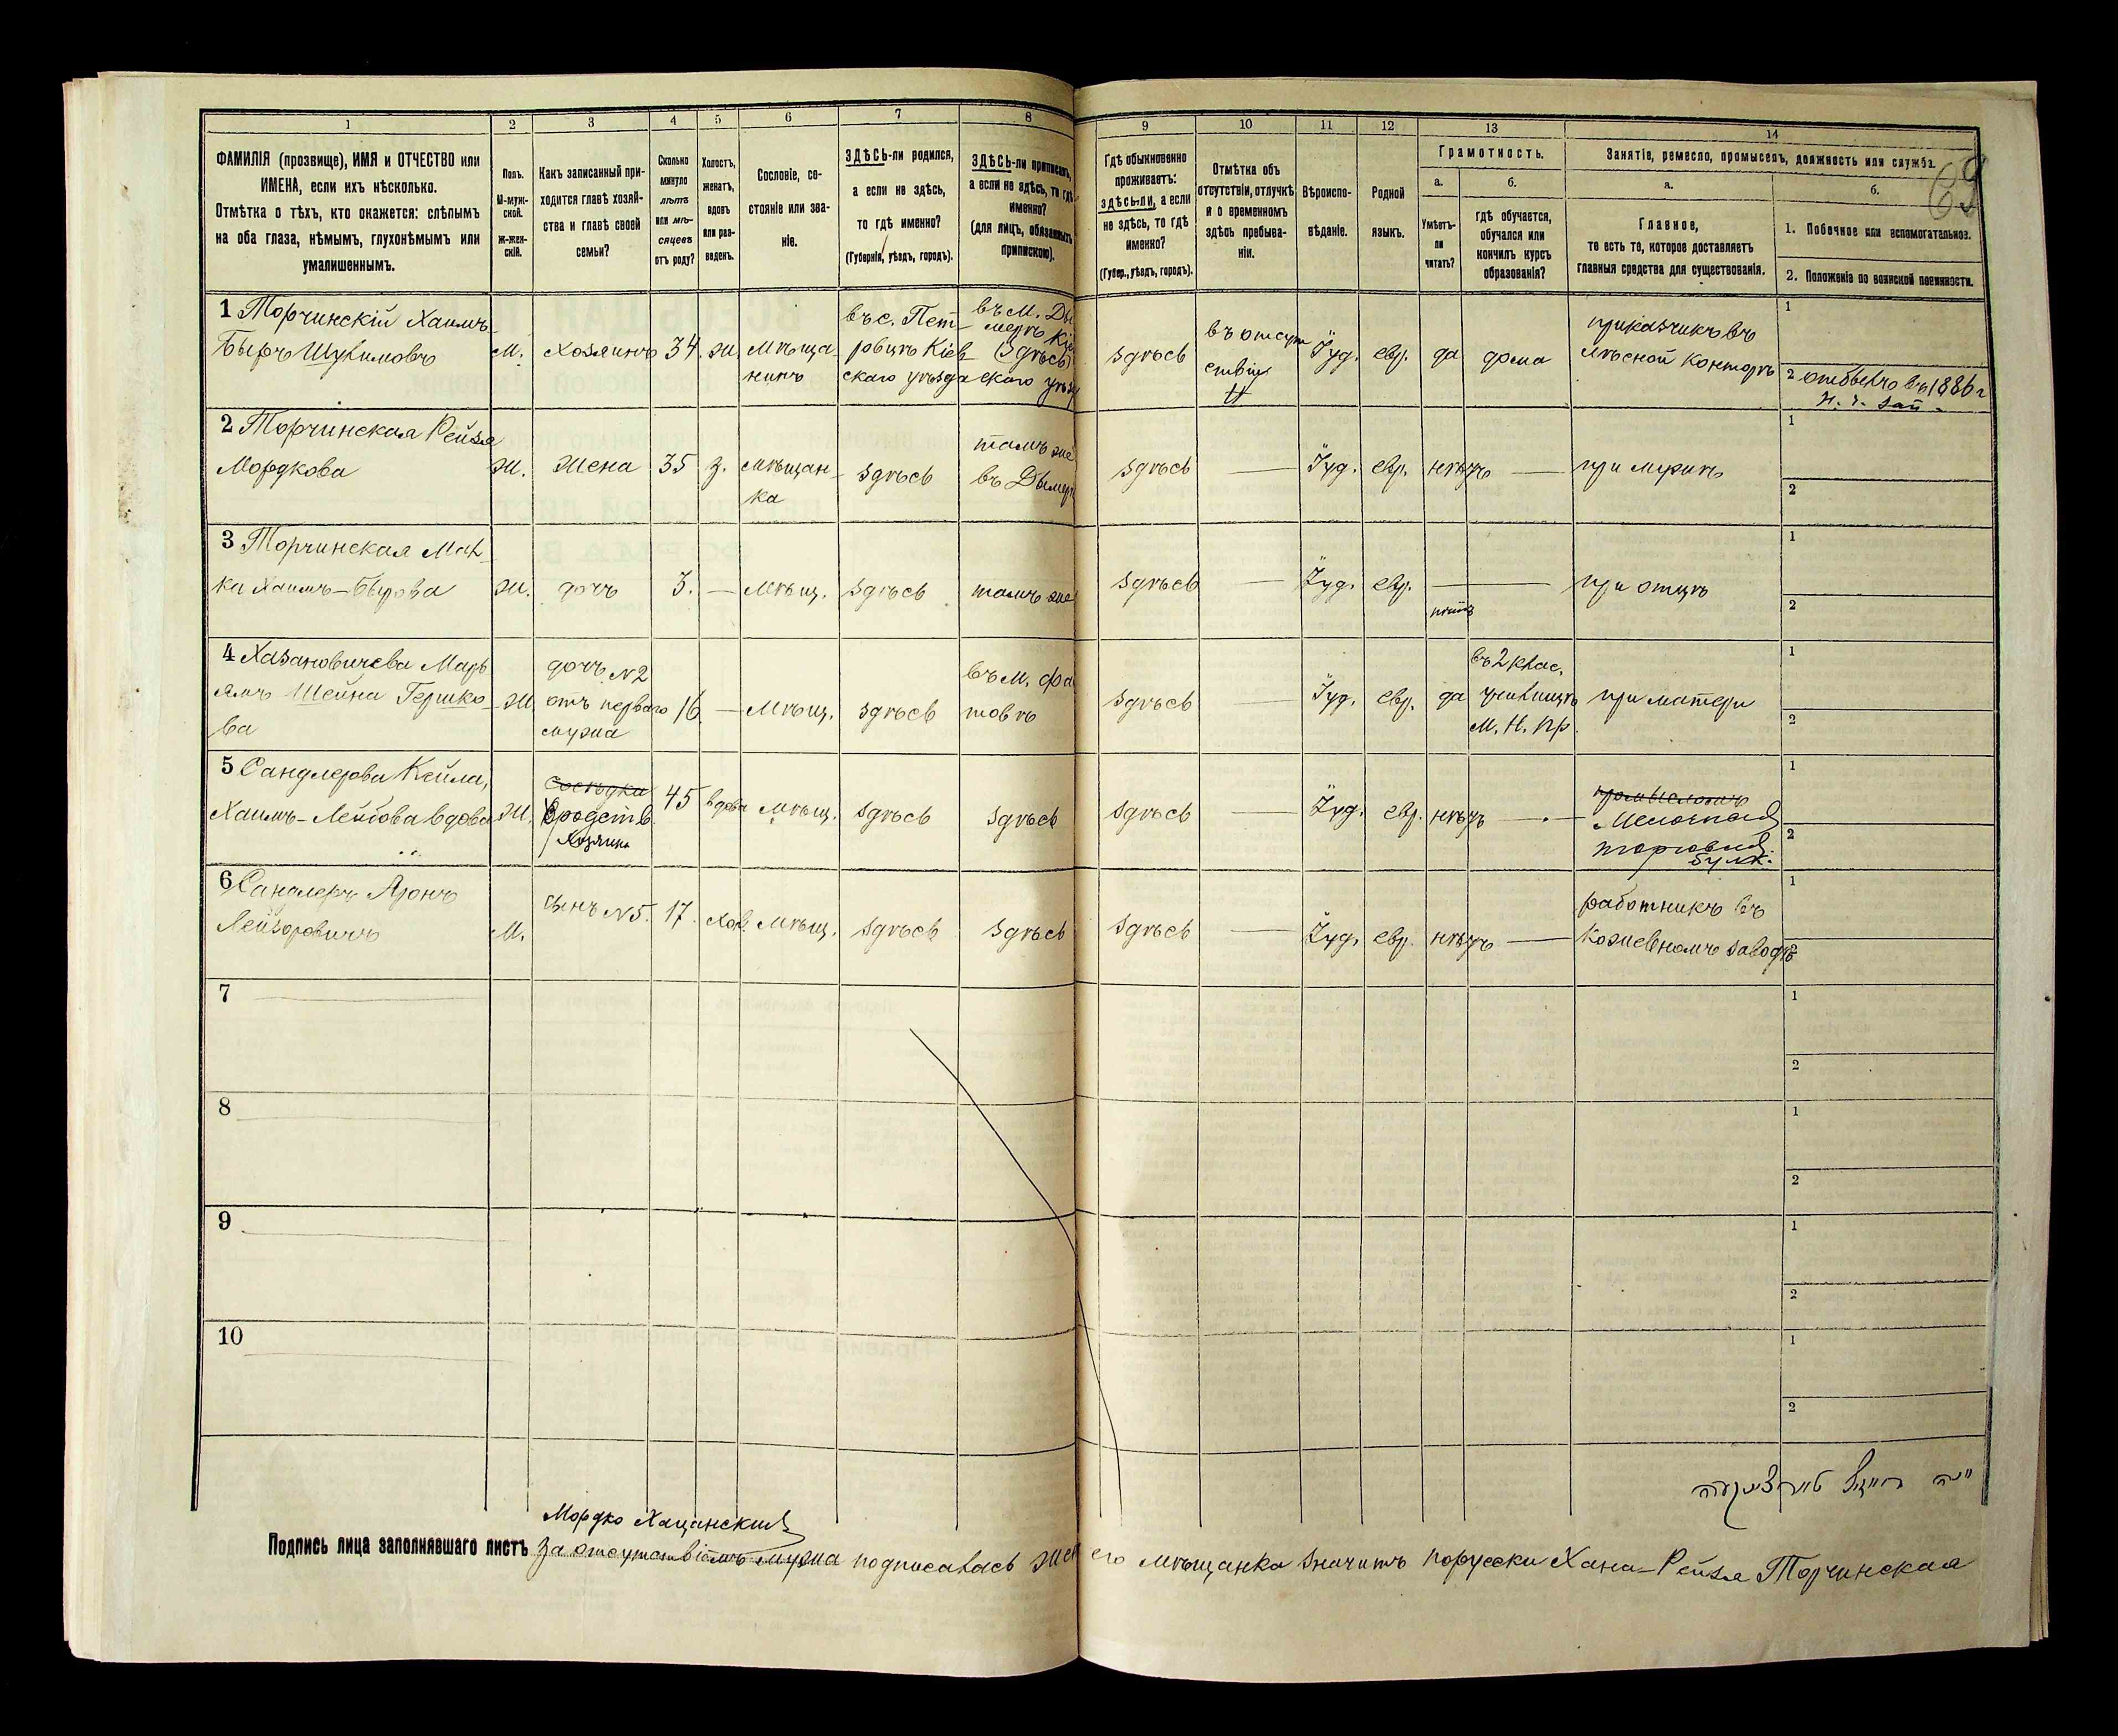 1
2
3
4
5
6
7
8
9
10
11
12
13
14
ФАМИЛІЯ (прозвище), ИМЯ и ОТЧЕСТВО или
ИМЕНА, если ихъ нѣсколько.
Отмѣтка о тѣхъ, кто окажется: слѣпымъ
на оба глаза, нѣмымъ, глухонѣмымъ или
умалишеннымъ.
Полъ.
М-муж-
ской.
Ж-жен-
скій.
Какъ записанный при-
ходится главѣ хозяй-
ства и главѣ своей
семьи?
Сколько
минуло
лѣтъ
или мѣ-
сяцевъ
отъ роду?
Холостъ,
женатъ,
вдовъ
или раз-
веденъ.
Сословіе, со-
стояніе или зва-
ніе.
ЗДѢСЬ-ли родился,
а если не здѣсь,
то гдѣ именно?
(Губернія, уѣздъ, городъ).
ЗДѢСЬ-ли приписанъ,
а если не здѣсь, то гдѣ
именно?
(для лицъ, обязанныхъ
припискою).
Гдѣ обыкновенно
проживаетъ:
здѣсь-ли, а если
не здѣсь, то гдѣ
именно?
(Губер., уѣздъ, городъ).
Отмѣтка объ
отсутствіи, отлучкѣ
и о временномъ
здѣсь пребыва-
ніи.
Вѣроиспо-
вѣданіе.
Родной
языкъ.
Грамотность.
а.
Умѣетъ-
ли
читать?
б.
гдѣ обучается,
обучался или
кончилъ курсъ
образованія?
Занятіе, ремесло, промыселъ, должность или служба.
а.
Главное,
то есть то, которое доставляетъ
главныя средства для существованія.
б.
1. Побочное или вспомогательное.
2. Положеніе по воинской повинности.
69
1 Торчинскій Хаимъ-
Беръ Шулимовъ
м.
Хозяинъ
34.
ж.
Мѣща-
нинъ
въ с. Пет-
ровцѣ Кіев-
скаго уѣзда
въ М. Ды
мерѣ Кіе
(здѣсь)
скаго уѣз
здѣсь
въ отсут
ствіи
Іуд.
евр.
да
дома
приказчикъ въ
лѣсной конторѣ
1
2 отбылъ въ 1886 г
2 Торчинская Рейзя
Мордкова
ж.
Жена
35
з.
мѣщан-
ка
здѣсь
тамъ же
въ Дымер
здѣсь
Іуд.
евр.
нѣтъ
при мужѣ
1
2
3 Торчинская Мал-
ка Хаимъ-Берова
ж.
дочь
3.
мѣщ.
здѣсь
тамъ же
здѣсь
Іуд.
евр.
нѣтъ
при отцѣ
1
2
4 Хазановичева Марь
ямъ Шейна Гершко-
ва
ж
дочь N2
отъ перваго
мужа
16.
Мѣщ.
здѣсь
въ М. Фа
стовѣ
здѣсь
Іуд.
евр.
да
въ 2 клас.
училищѣ
М. Н. Пр.
при матери
1
2
5 Сандлерова Кейла,
Хаимъ-Лейбова вдова
ж.
сосѣдка
родств.
Хозяина
45
вдова
мѣщ.
здѣсь
здѣсь
здѣсь
Іуд.
евр.
нѣтъ
Мелочная
торговля
булк.
1
2
6 Сандлеръ Аронъ
Лейзоровичъ
М.
сынъ N5.
17.
хол.
Мѣщ.
здѣсь
здѣсь
здѣсь
Іуд.
евр.
нѣтъ
работникъ въ
кожевеномъ заводѣ
1
2
7
1
2
8
1
2
9
1
2
10
1
2
Мордко Хацанский
Подпись лица заполнявшаго листъ За отсутствіемъ мужа подписалась жен его мѣщанка значитъ порусски Хана-Рейзя Торчинская